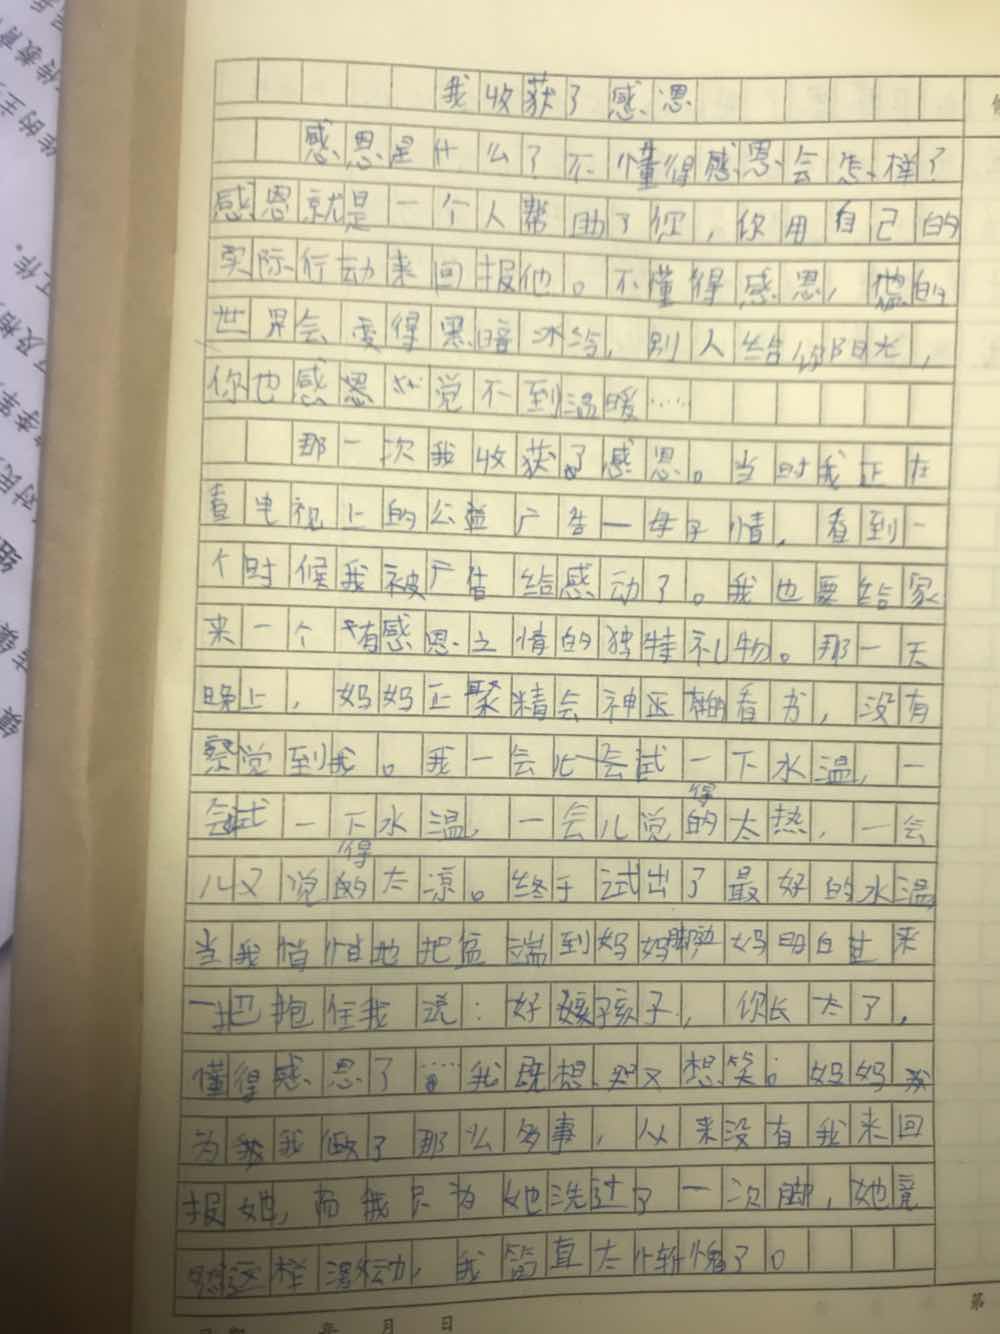 我收获了感恩
感恩是什么？不懂得感恩会怎样？
感恩就是一个人帮助了你，你用自己的
实际行动来回报他。不懂得感恩，他的
世界会变得黑暗冰冷，别人给你阳光，
你也感觉不到温暖……
那一次我收获了感恩。当时我正在
看电视上的公益广告一母子情，看到一
个时候我被广告给感动了。我也要给家
来一个有感恩之情的独特礼物。那一天
晚上，妈妈正聚精会神正在看书，没有
察觉到我。我一会儿会试一下水温，一
会试一下水温，一会儿觉得的太热，一会
儿又觉得的太凉。终于试出了最好的水温
当我悄悄地把盆端到妈妈脚边妈明白过来
一把抱住我说：好孩子，你长大了，
懂得感恩了……我既想哭又想笑。妈妈
为我做了那么多事，从来没有我来回
报她，而我只为她洗过了一次脚，她竟
这样激动，我简直太惭愧了。
年 月 日
第